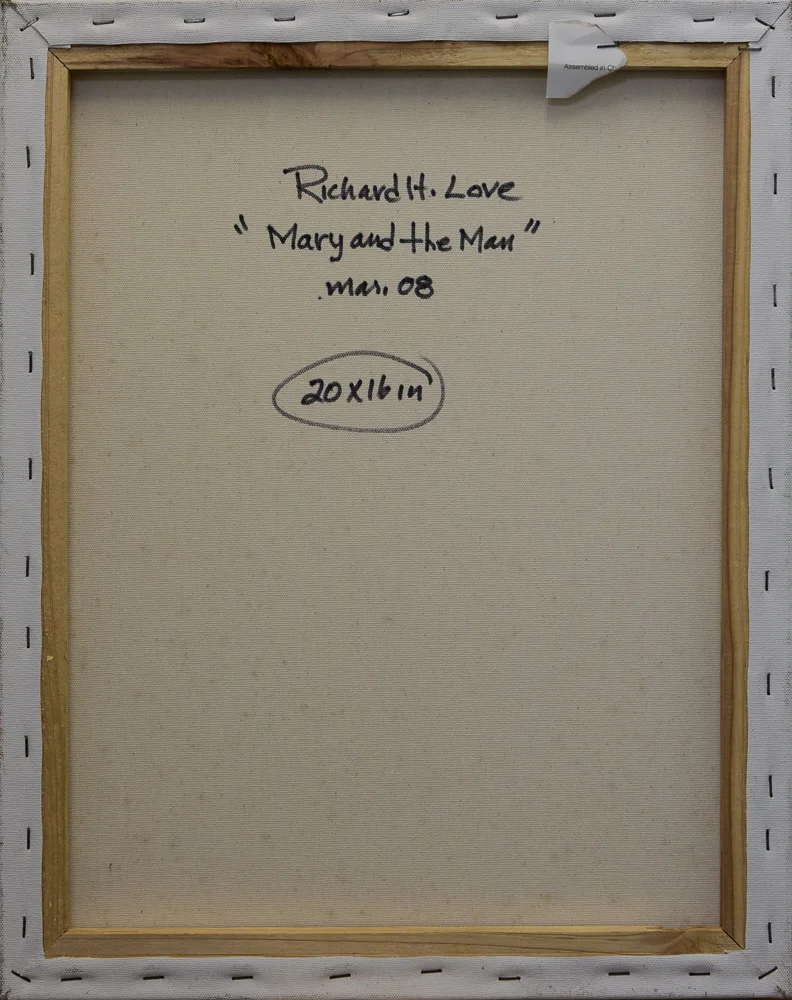 Assembled in Ch
Richard H. Love
"Mary and the Man"
mar. 08
20X16 in